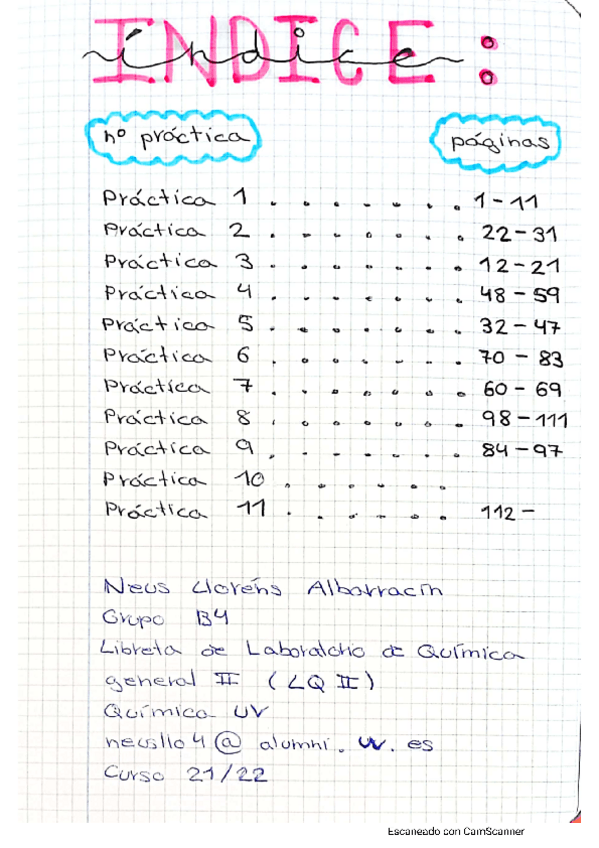 ÍNDICE:
índice
nº práctica páginas
Práctica 1 . . . . . . . 1-11
Práctica 2 . . . . . . . 22-31
Práctica 3 . . . . . . . 12-21
Práctica 4 . . . . . . . 48-59
Práctica 5 . . . . . . . 32-47
Práctica 6 . . . . . . . 70-83
Práctica 7 . . . . . . . 60-69
Práctica 8 . . . . . . . 98-111
Práctica 9 . . . . . . . 84-97
Práctica 10 . . . . . .
Práctica 11 . . . . . . 112-
Neus Llorens Albarracín
Grupo B4
Libreta de Laboratorio de Química
general II (LQ II)
Química UV
neusllo4@alumni.uv.es
Curso 21/22
Escaneado con CamScanner